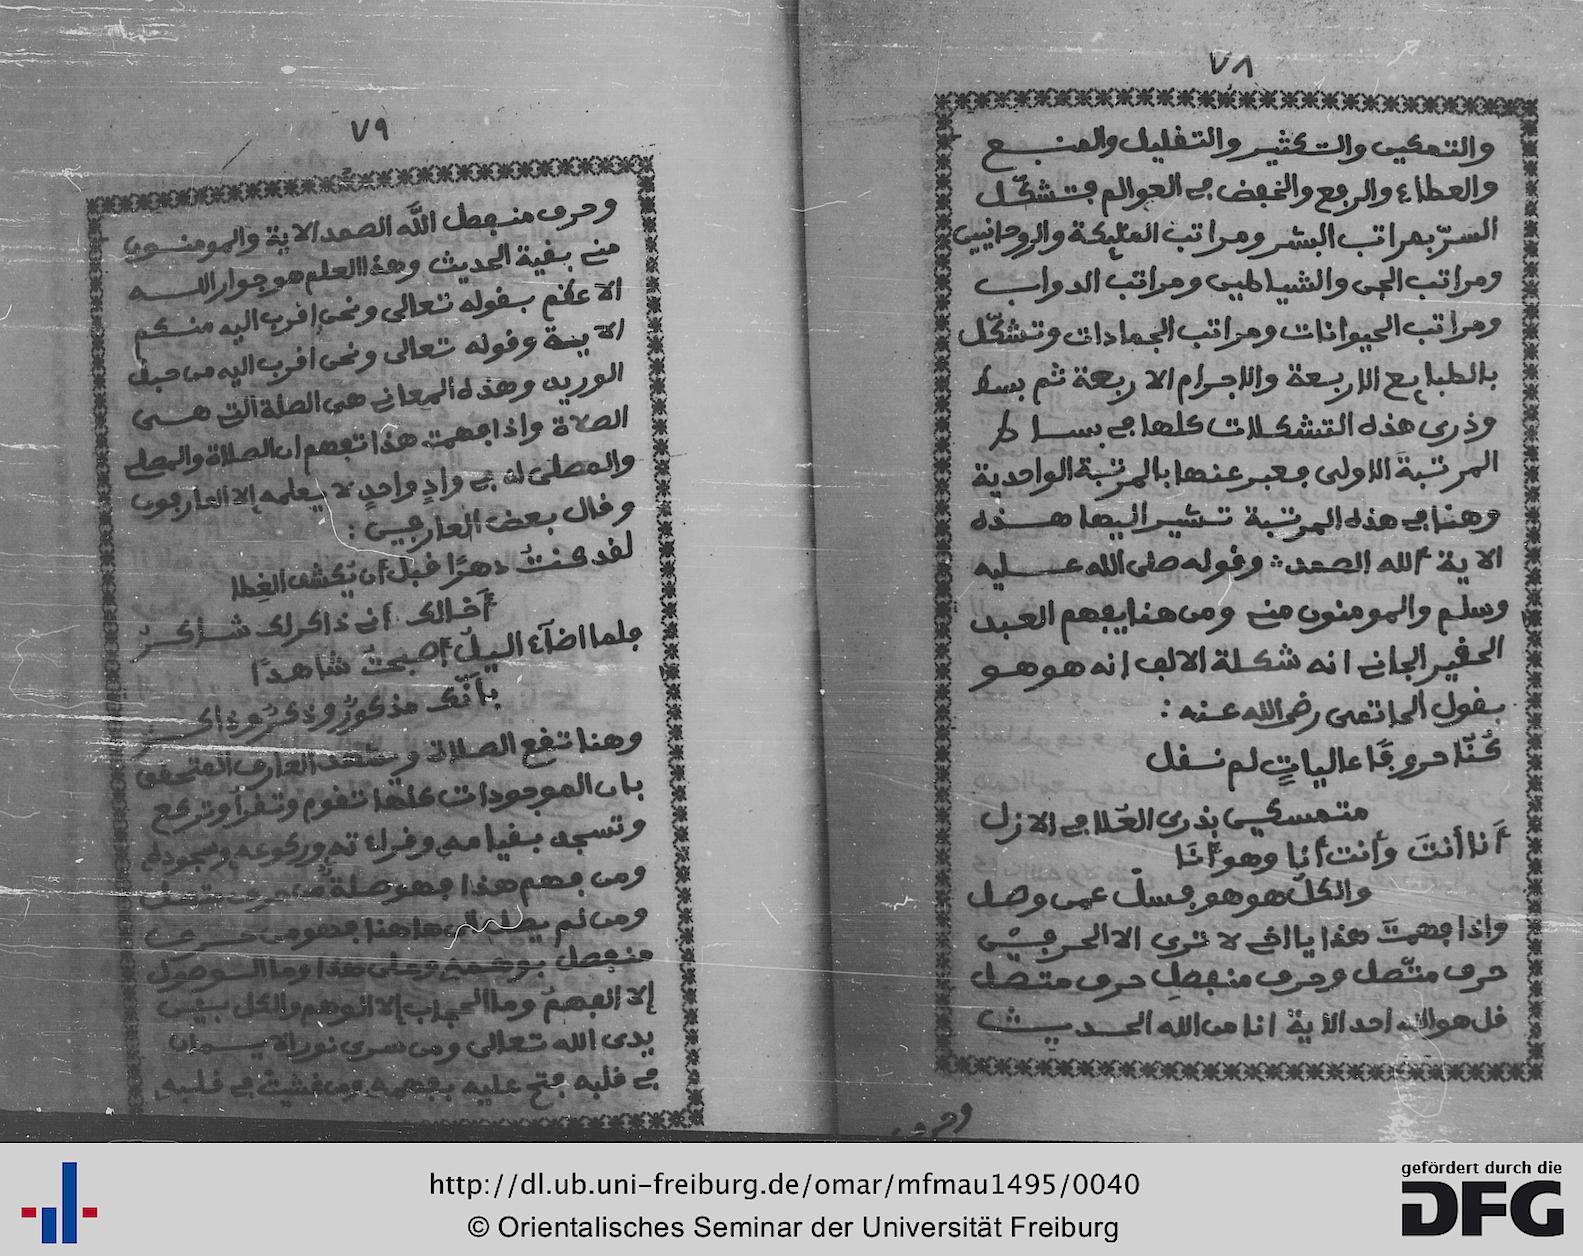 ٧٨
والتمكين والتكثير والتقليل والمنع
والعطاء والرفع والخفض في العوالم فتشكّل
السرّ بمراتب البشر ومراتب المليكة والروحانيين
ومراتب الجن والشياطين ومراتب الدواب
ومراتب الحيوانات ومراتب الجمادات وتشكّل
بالطبايع الاربعة والاجرام الاربعة ثم بسط
وذرى هذه التشكلات كلها في بساط
المرتبة الاولى فعبر عنها بالمرتبة الواحدية
وهنا في هذه المرتبة تشير اليها هذه
الاية الله الصمد وقوله صلى الله عليه
وسلم والمومنون مني ومن هنا يفهم العبد
الحقير الجاني انه شكلة الالف انه هو هو
بقول الحاتمى رضى الله عنه :
كُنّا حروفًا عالياتٍ لم نقل
متمسكين بذرى العُلا في الازل
أَنا أنتَ وأنت أنا وهو أنَا
والكلّ هو هو فسل عمن وصل
واذا فهمتَ هذا يا اخي لا ترى الا الحرفين
حرف متّصل وحرف منفصلِ حرف متصل
قل هو الله احد الاية انا من الله الحديث
وحرف
٧٩
وحرف منفصل اللَّه الصمد الاية والمومنون
مني بقية الحديث وهذا العلم هو جوار الله
الاعظم بقوله تعالى ونحن اقرب اليه منكم
الاية وقوله تعالى ونحن اقرب اليه من حبل
الوريد وهذه المعاني هى الصلة التى هى
الصلاة واذا فهمت هذا تفهم ان الصلاة والمصلي
والمصلى له في وادٍ واحدٍ لا يعلمه إلا العارفون
وقال بعض العارفين :
لقد كنتُ دهرًا قبل أن يُكشف الغِطا
أَخالك أني ذاكر لك شاكرُ
فلما اضآء اليلُ أصبحتُ شاهدًا
بأنّك مذكورٌ وذكرٌ وذاكرُ
وهنا تقع الصلاة العارف المتحقق
بان الموجودات كلها تقوم وتقرأ وتركع
وتسجد بقيامه وقراءته وركوعه وسجوده
ومن فهم هذا فهو صلة حرف متصل
ومن لم يصل الى هاهنا فهو من حرف
منفصل بوهمه وعلى هذا وما الوصول
إلا الفهمُ وما الحجاب إلا الوهم والكل بين
يدى الله تعالى ومن سرى نور الايمان
في قلبه فتح عليه بفهمه ومن في قلبه
http://dl.ub.uni-freiburg.de/omar/mfmau1495/0040
© Orientalisches Seminar der Universität Freiburg
gefördert durch die
DFG